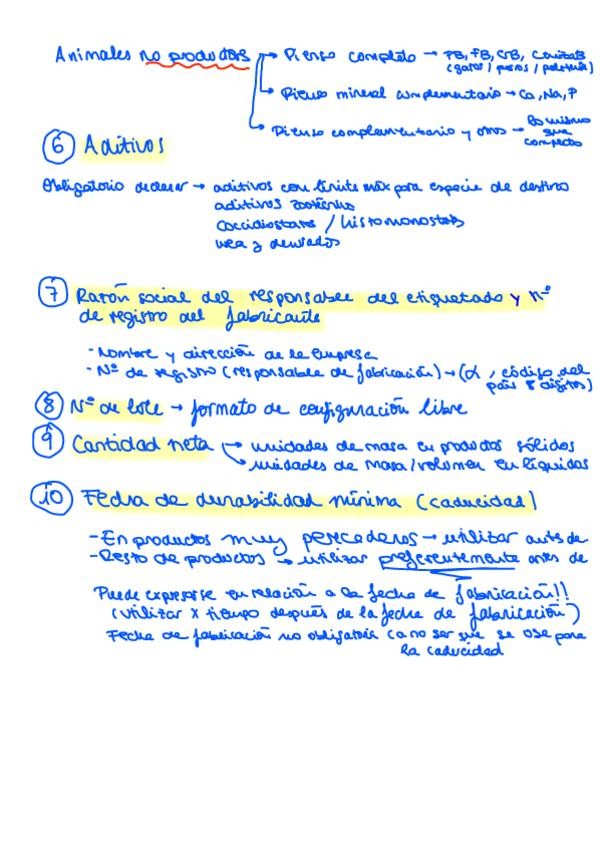 Animales no productores → Pienso completo → PB, FB, GB, Cenizas B
(gatos / perros / peletería)
→ Pienso mineral complementario → Ca, Na, P
→ Pienso complementario y otros → Lo mismo que completo
6 Aditivos
Obligatorio declarar → aditivos con límite máx para especie de destino
aditivos zootécnicos
coccidiostatos / histomonostatos
urea y derivados
7 Razón social del responsable del etiquetado y nº
de registro del fabricante
- Nombre y dirección de la empresa
- Nº de registro (responsable de fabricación) → (α, código del
país 8 dígitos)
8 Nº de lote → formato de configuración libre
9 Cantidad neta → unidades de masa en productos sólidos
→ unidades de masa/volumen en líquidos
10 Fecha de durabilidad mínima (caducidad)
- En productos muy perecederos → utilizar antes de
- Resto de productos → utilizar preferentemente antes de
Puede expresarse en relación a la fecha de fabricación!!
(utilizar X tiempo después de la fecha de fabricación)
Fecha de fabricación no obligatoria (a no ser que se use para
la caducidad